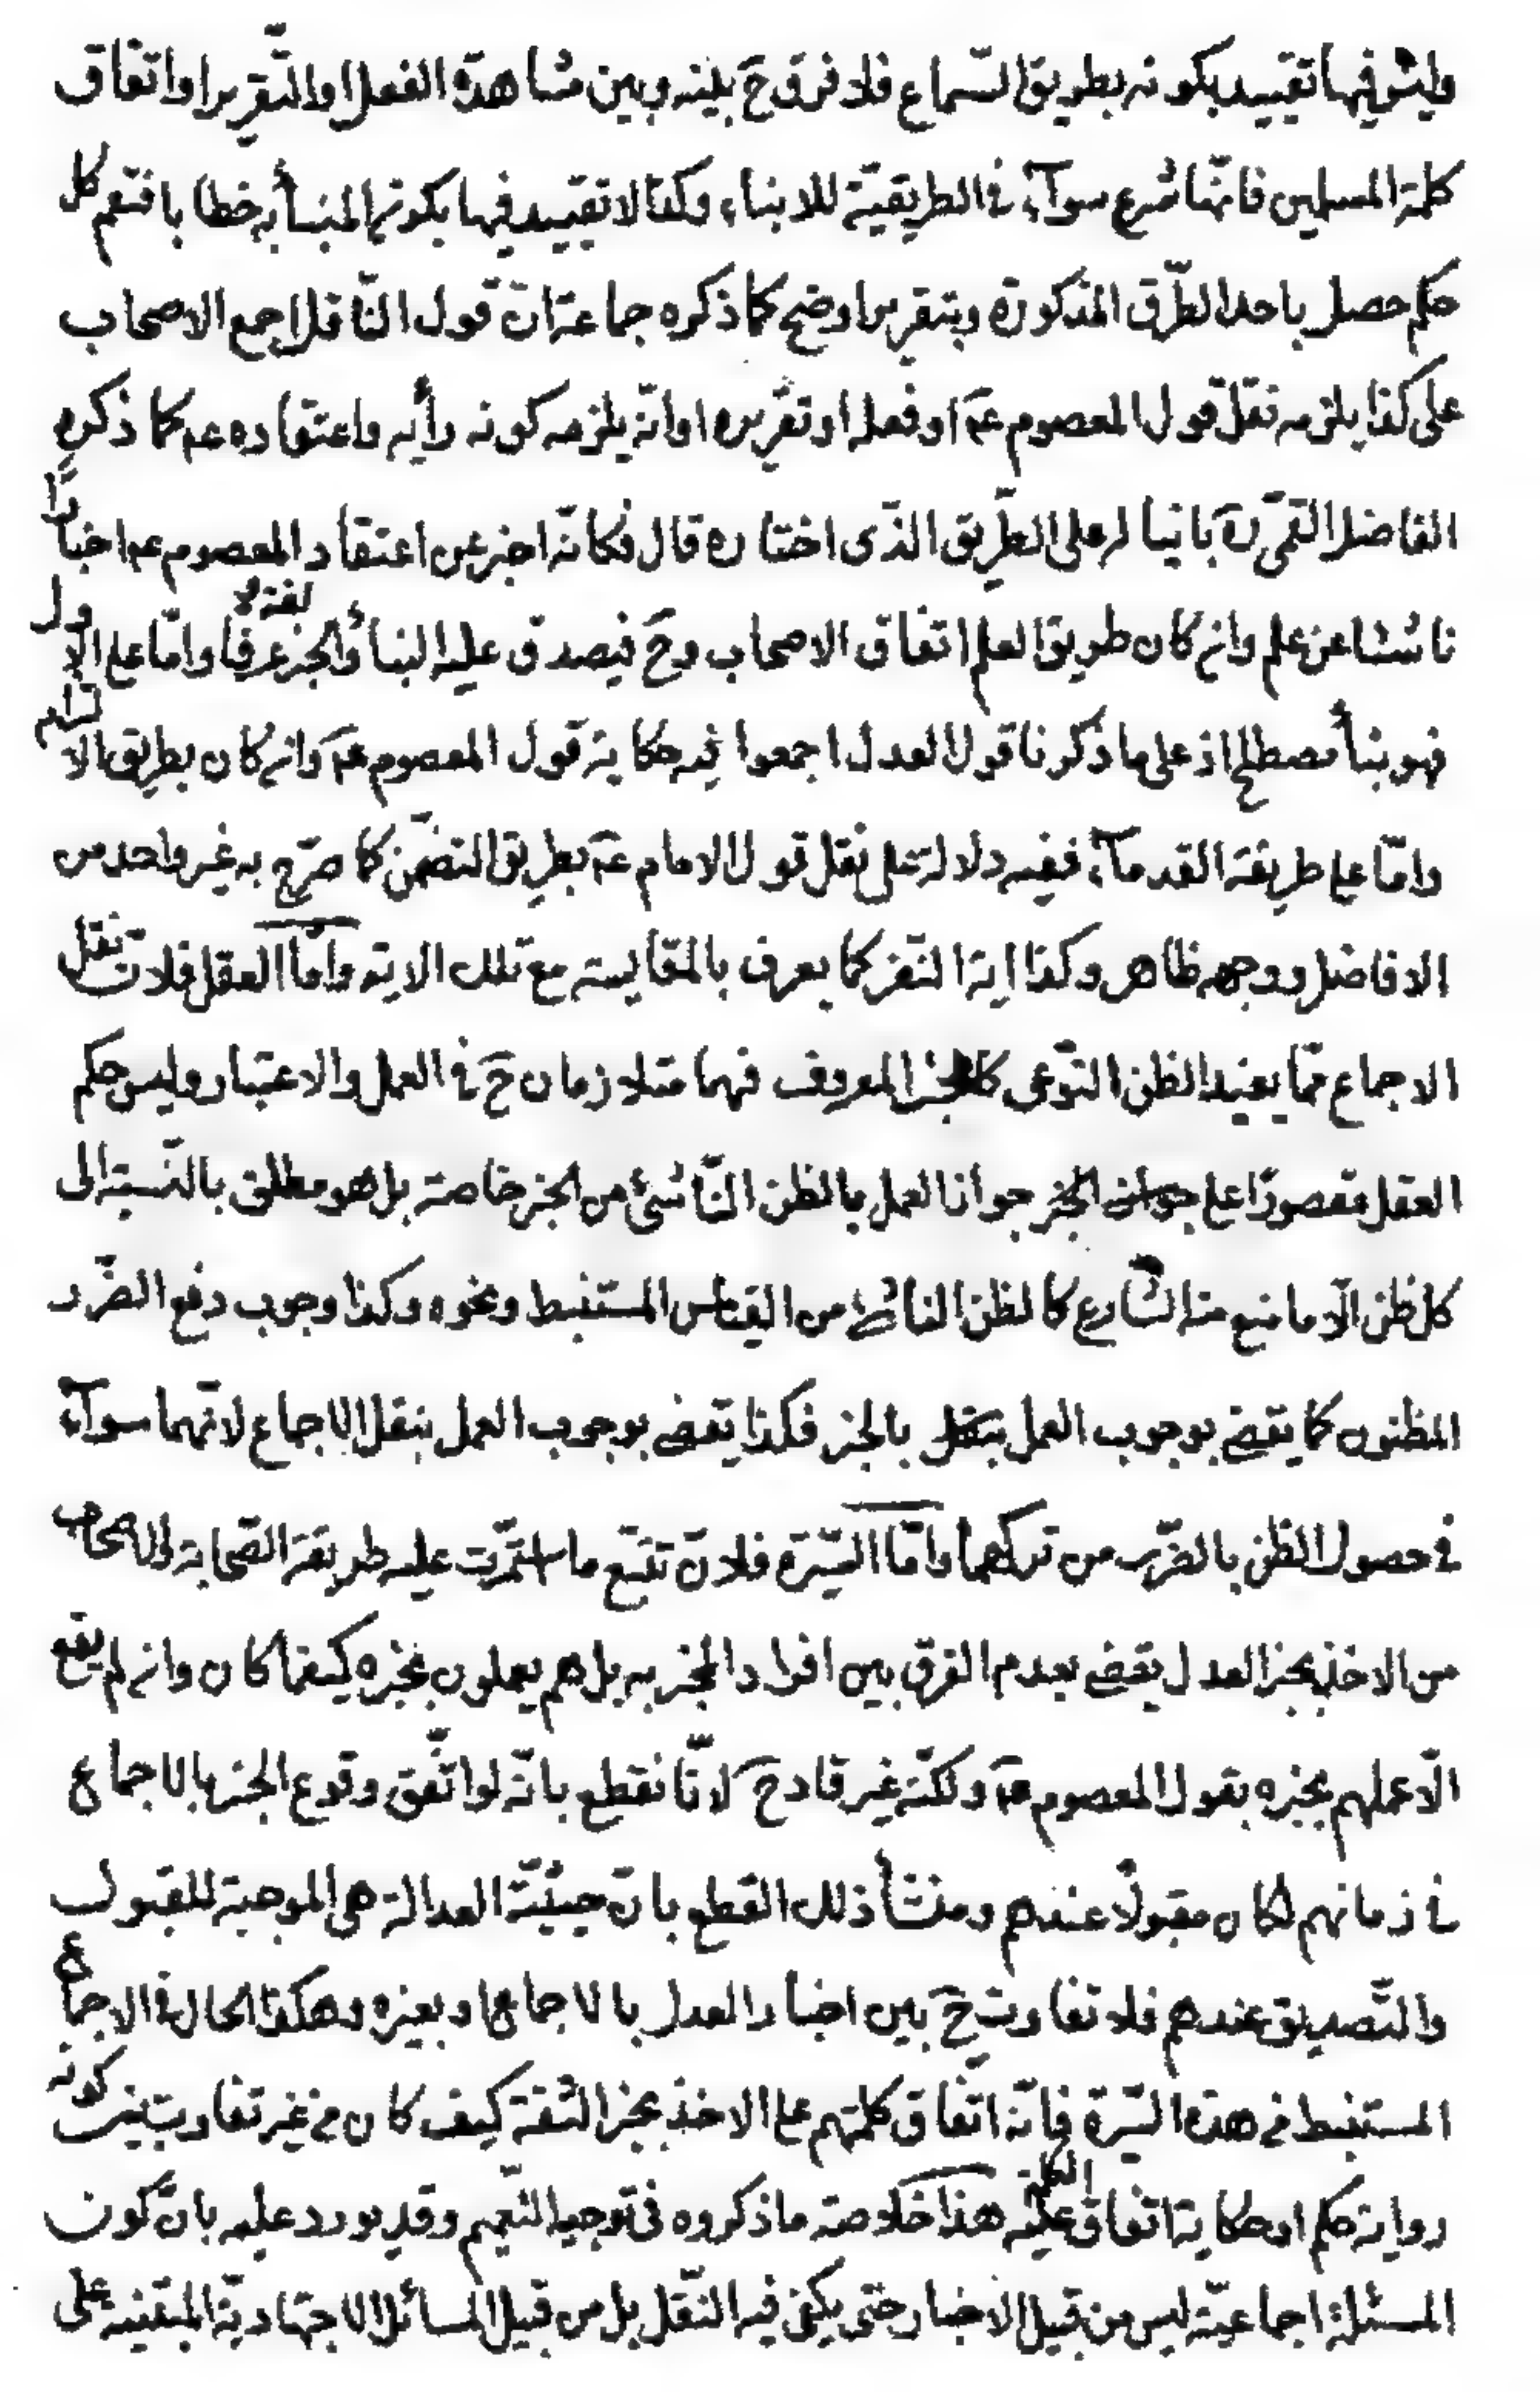 وليس فيها تقييد بكونه بطريق السّماع فلا فرق ح بينه وبين مشاهدة الفعل او التّقرير او اتفاق
كلمة المسلمين فانّها شرع سوآء في الطريقيّة للانباء وكذا لا تقييد فيها بكون المنبأ به خطابا فتعم كل
حكم حصل باحد الطّرق المذكورة وبتقرير اوضح كما ذكره جماعة انّ قول النّاقل اجمع الاصحاب
على كذا يلزمه نقل قول المعصوم عم او فعله او تقريره او انّه يلزمه كونه رأيه واعتقاده عم كما ذكره
الفاضل القمّي ره بانيا له على الطّريق الذّى اختاره قال فكانّه اخبر عن اعتقاد المعصوم عم اخبارا
ناشئا عن علم وان كان طريق العلم اتفاق الاصحاب وح فيصدق عليه النبأ والخبر لغة لا عرفا وامّا على الاول
فهو نبأ مصطلح اذ على ما ذكرنا قول العدل اجمعوا فيه حكاية قول المعصوم عم وان كان بطريق الالتزام
وامّا على طريقة القدمآء ففيه دلالة على نقل قول الامام عم بطريق التضمّن كما صرّح به غير واحد من
الافاضل ووجهه ظاهر وكذا اية النّفر كما يعرف بالمقايسة مع تلك الاية وامّا العقل فلانّ نقل
الاجماع ممّا يفيد الظن النّوعى كالخبر المعروف فهما متلازمان ح في العمل والاعتبار وليس حكم
العقل مقصورا على جواز الخبر جواز العمل بالظن النّاشئ من الخبر خاصة بل هو مطلق بالنّسبة الى
كل ظن الّا ما منع منه الشّارع كالظن الناشئ من القياس المستنبط ونحوه وكذا وجوب دفع الضّرر
المظنون كما يقضى بوجوب العمل بنقل بالخبر فكذا يقضى بوجوب العمل بنقل الاجماع لانّهما سوآء
في حصول الظن بالضّرر من تركهما وامّا السّيرة فلانّ تتبّع ما استمرّت عليه طريقة الصّحابة والاصحاب
من الاخذ بخبر العدل يقضى بعدم الفرق بين افراد المخبر به بل هم يعملون بخبره كيفما كان وان لم يقع
الّا عملهم بخبره بقول المعصوم عم ولكنّه غير قادح لانّا نقطع بانّه لو اتّفق وقوع الخبر بالاجماع
في زمانهم لكان مقبولا عندهم ومنشأ ذلك القطع بانّ حيثيّة العدالة هى الموجبة للقبول
والتّصديق عندهم فلا تفاوت ح بين اخبار العدل بالاجماع او بغيره وهكذا الحال في الاجماع
المستنبط من هذه السّيرة فانّه اتّفاق كلمتهم على الاخذ بخبر الثقة كيف كان من غير تفاوت بين كونه
رواية حكم او حكاية اتفاق الكل عليه هذا خلاصة ما ذكروه في توجيه التّعميم وقد يورد عليه بانّ كون
المسئلة اجماعيّة ليس من قبيل الاخبار حتى يكفى فيه النّقل بل من قبيل المسائل الاجتهاديّة المبتنية على